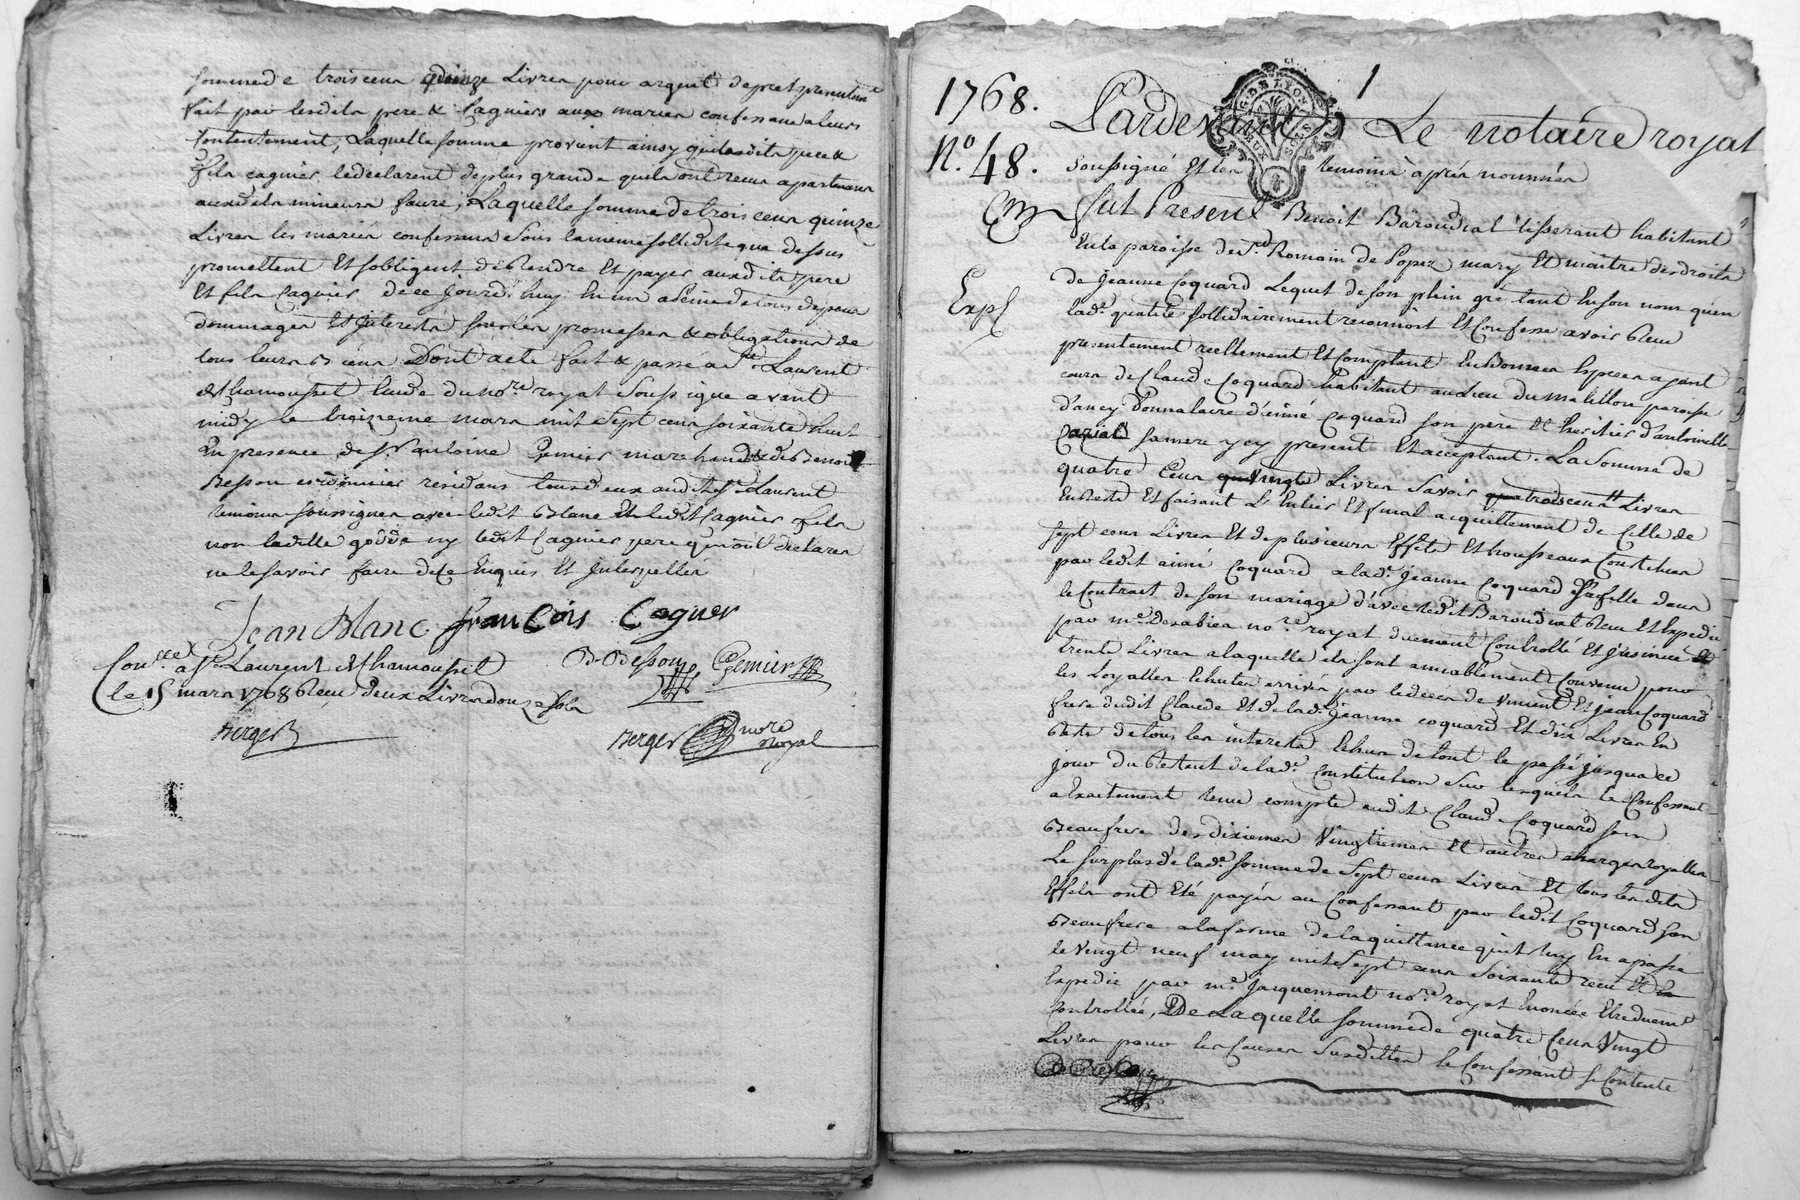 somme de trois cens quinze Livres pour argent de pret presentem.t
fait par lesdits pere & Cagniers auxd mariés confessans a leurs
Contentement, Laquelle somme provient ainsy quilesdits pere &
fils cagnier le declarent de plus grande quils ont recu apartenans
auxdits mineurs faure, Laquelle somme de trois cens quinze
Livres les mariés confessans sous la meme sollidité que dessus
promettent Et sobligent de Rendre Et payer auxdits pere
Et fils Cagnier de ce Jourd'huy En un a peine de tous depens
dommages Et Interests sous les promesses & obligations de
tous leurs Biens Dont acte fait & passé a St Laurent
de Chamousset Etude du No.re royal soussigné avant
midy le treizieme mars mil sept cens soixante huit
En presence de Sr antoine Gemier marchand & de Benoit
Besson cordonnier residans tous deux audit St Laurent
temoins soussignés avec ledit Blanc & ledit Cagnier fils
non laditte godde ny ledit Cagnier pere qui ont declarés
ne le savoir faire de ce Enquis Et Interpellés
Jean Blanc francois Cagner
B. Besson Gemier
Con.llé a St Laurent de Chamousset
le 15 mars 1768 Recu deux Livres douze sols
Berger
Berger no.re royal
1768.
N.o 48.
Exp
G. DE LYON
1
Pardevant Le notaire royal
soussigné Et les temoins après nommés
fut Present Benoit Baroudiat tisserant habitant
En la paroisse de St. Romain de Popez mary Et maitre des droits
de Jeanne Coquard Lequel de son plein gré tant En son nom qu'en
lad.e qualité sollidairement reconnoit Et Confesse avoir Recu
presentement reellement Et Comptant En Bonnes Especes ayant
cours de Claude Coquard habitant au Lieu du Matillon paroisse
d'ancy Donnataire d'aimé Coquard son pere Et heritier d'antoinette
sa mere y cy present Et acceptant. La Somme de
quatre Cens Vingt Livres Savoir quatre cens Livres
En Reste Et faisant L'Entier Et final acquittement de Celle de
sept cens Livres Et de plusieurs Effets Et trousseaux Constitués
par ledit aimé Coquard a lad.e Jeanne Coquard sa fille dans
le Contrat de son mariage d'avec ledit Baroudiat Recu Et Expedié
par m.e Desabies no.re royal duement Controllé Et Insinué
trente Livres a laquelle ils sont amiablement Convenu pour
les Loyattes Echutes arrivés par le deces de Vincent Et Jean Coquard
frere dudit Claude Et de lad.e Jeanne coquard Et dix Livres En
Reste de tous les interets Echus de tout le passé jusqua ce
jour du Restant de lad.e Constitution Sur lesquels le Confessant
a Exactement tenu compte audit Claude Coquard son
Beaufrere des dixiemes Vingtiemes Et autres charges royalles
Le surplus de lad.e somme de Sept cens Livres Et tous lesdits
Effets ont Eté payés au Confessant par ledit Coquard son
Beaufrere a la forme de la quittance qu'il luy En a passé
le Vingt neuf may mil Sept cens Soixante recu
Expedié par m.e Jacquemont no.re royal Enoncée Et duem.t
Controllée, De Laquelle somme de quatre Cens Vingt
Livres pour les Causes Susdittes le Confessant se Contente